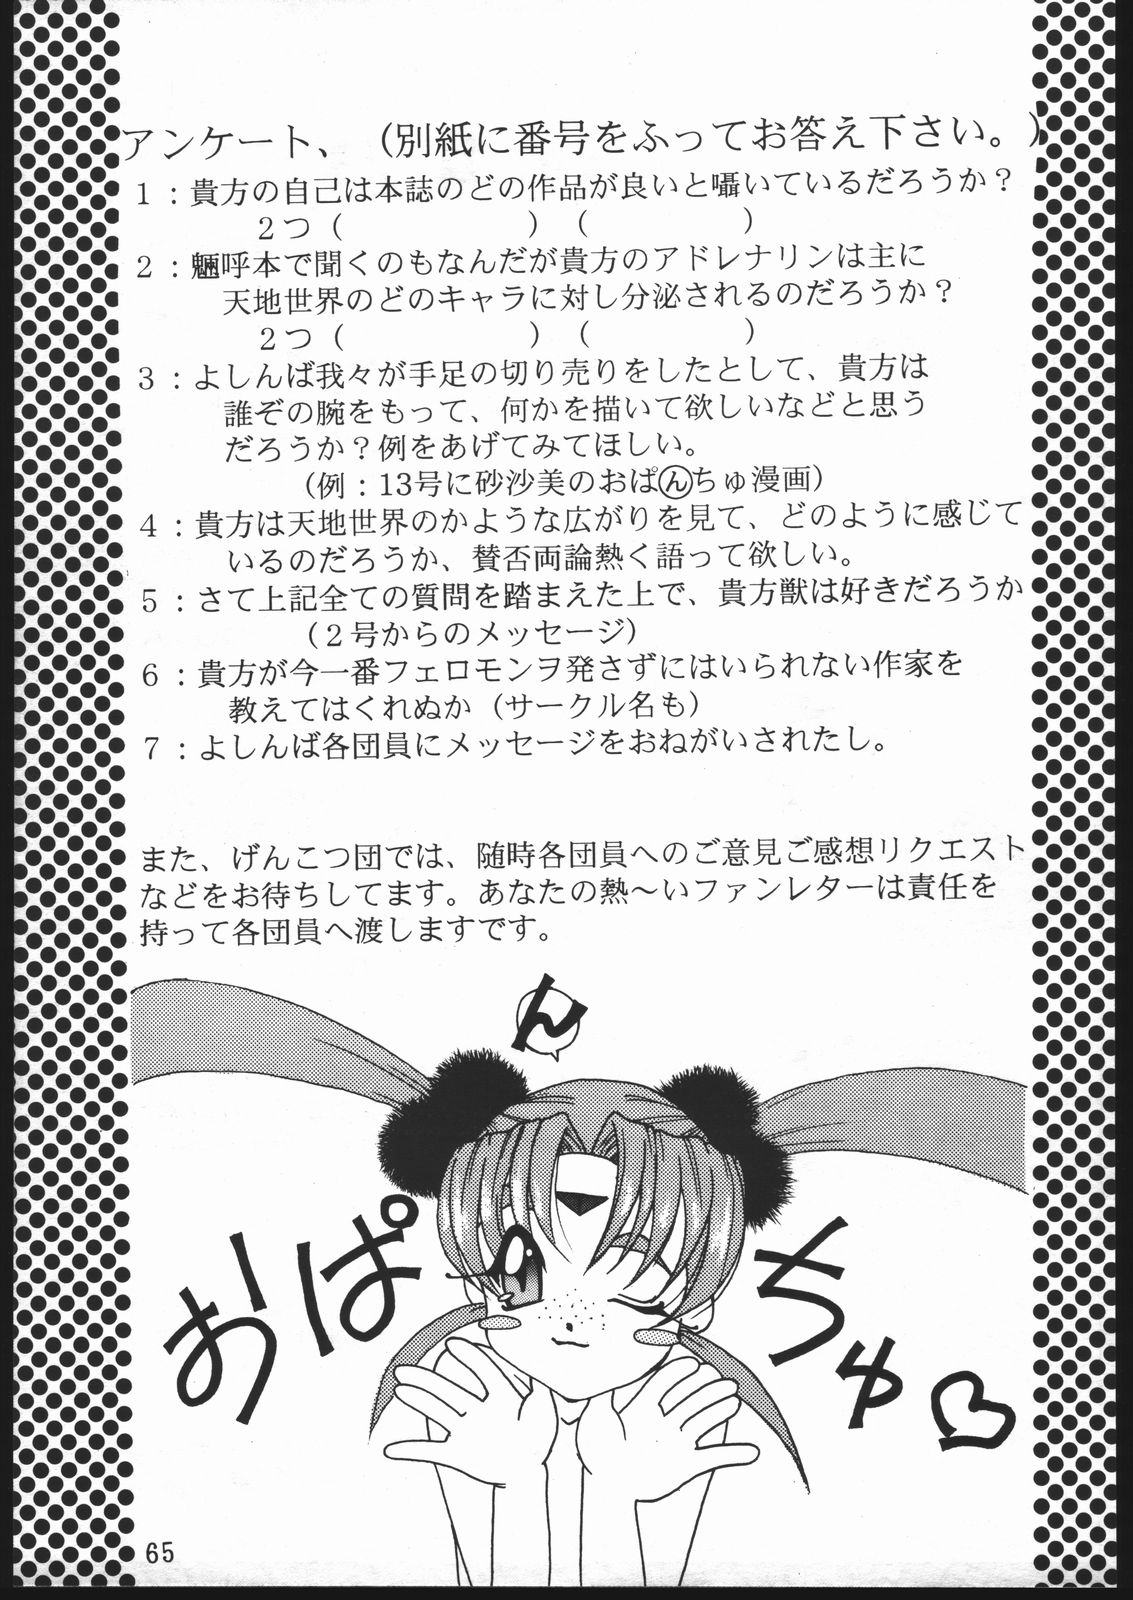 アンケート、（別紙に番号をふってお答え下さい。）
1：貴方の自己は本誌のどの作品が良いと囁いているだろうか？
２つ（　　　　　　）（　　　　　）
2：魎呼本で聞くのもなんだが貴方のアドレナリンは主に
天地世界のどのキャラに対し分泌されるのだろうか？
２つ（　　　　　　）（　　　　　）
3：よしんば我々が手足の切り売りをしたとして、貴方は
誰ぞの腕をもって、何かを描いて欲しいなどと思う
だろうか？例をあげてみてほしい。
（例：13号に砂沙美のおぱ㋑ちゅ漫画）
4：貴方は天地世界のかような広がりを見て、どのように感じて
いるのだろうか、賛否両論熱く語って欲しい。
5：さて上記全ての質問を踏まえた上で、貴方獣は好きだろうか
（２号からのメッセージ）
6：貴方が今一番フェロモンヲ発さずにはいられない作家を
教えてはくれぬか（サークル名も）
7：よしんば各団員にメッセージをおねがいされたし。
また、げんこつ団では、随時各団員へのご意見ご感想リクエスト
などをお待ちしてます。あなたの熱〜いファンレターは責任を
持って各団員へ渡しますです。
おぱ
ん
ちゅ♡
65